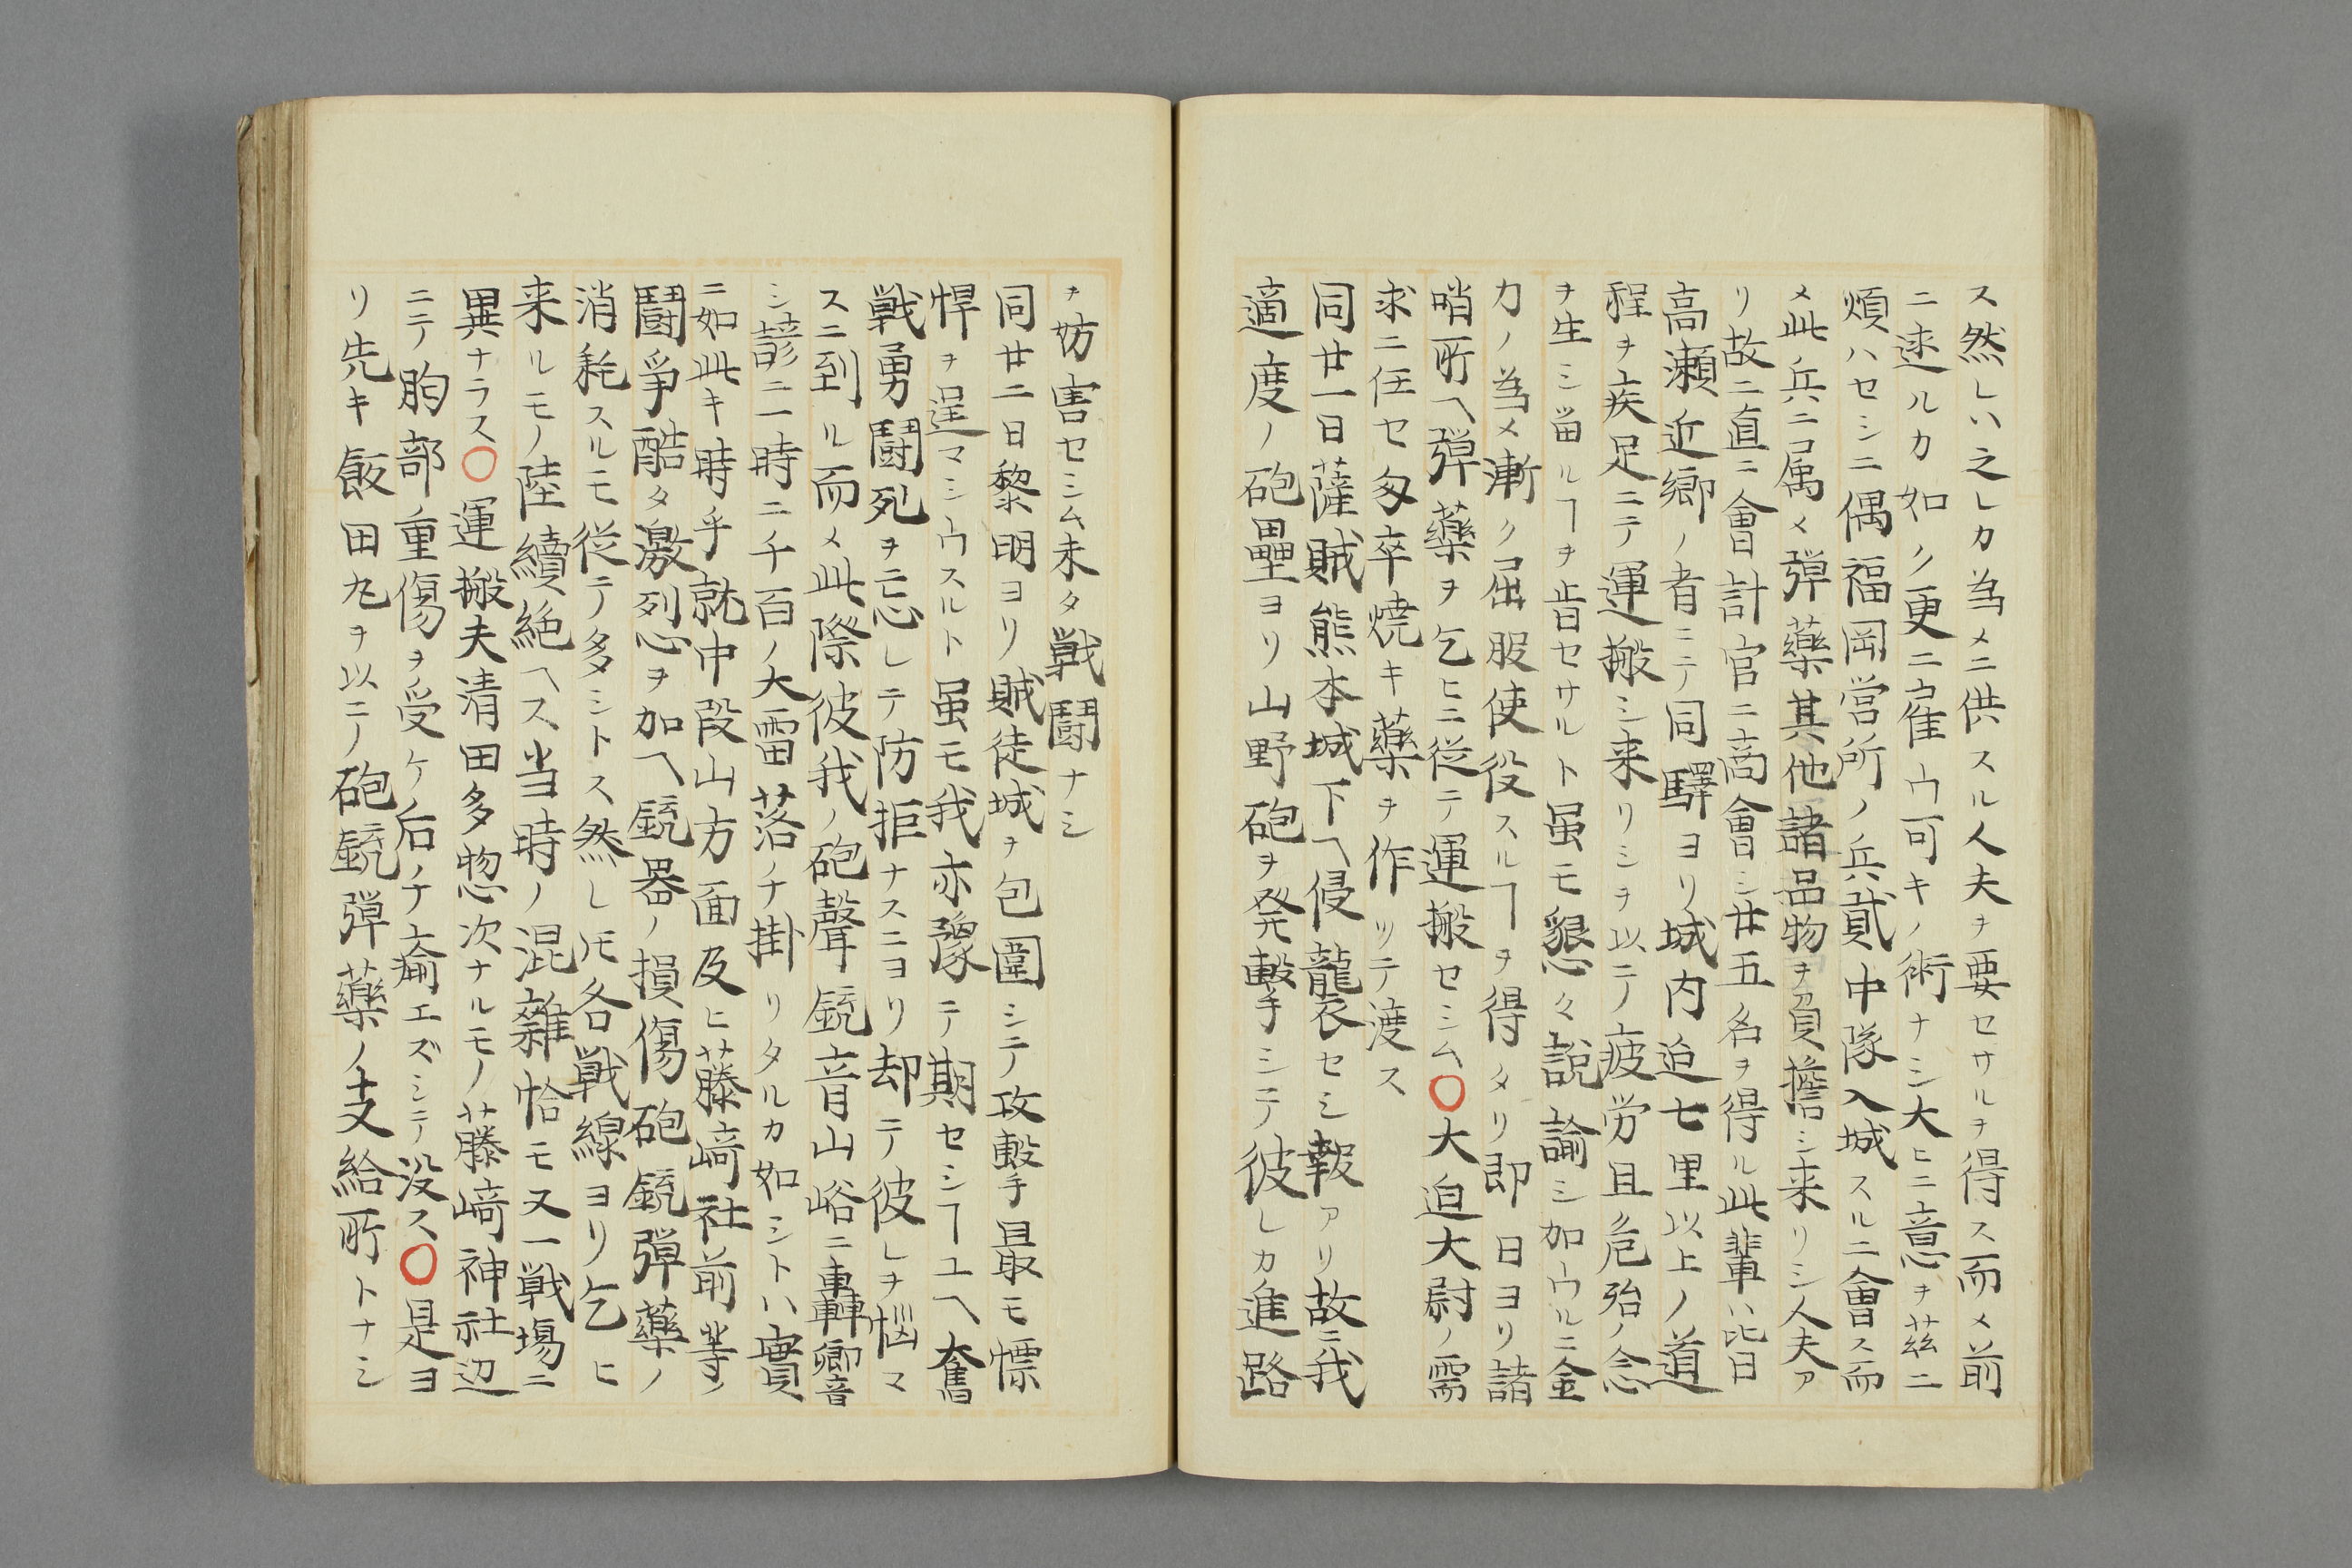 ス然レハ之レカ為メニ供スル人夫ヲ要セサルヲ得ス而メ前
ニ逑ルカ如ク更ニ雇ウ可キノ術ナシ大ヒニ意ヲ茲ニ
煩ハセシニ偶福岡営所ノ兵貳中隊入城スルニ會ス而
メ此兵ニ属メ弾藥其他諸品物ヲ負擔シ来リシ人夫ア
リ故ニ直ニ會計官ニ商會シ廿五名ヲ得ル此輩ハ比日
高瀬近郷ノ者ニテ同驛ヨリ城内迠七里以上ノ道
程ヲ疾足ニテ運搬シ来リシヲ以テ疲労且ツ危殆ノ念
ヲ生シ留ルヿヲ肯セサルト虽モ懇々説諭シ加ウルニ金
力ノ為メ漸ク屈服使役スルヿヲ得タリ即日ヨリ諸
哨所ヘ弾藥ヲ乞ヒニ従テ運搬セシム〇大迫大尉ノ需
求ニ任セ匆卒焼キ藥ヲ作ッテ渡ス
同廿一日薩賊熊本城下ヘ侵襲セシ報アリ故ニ我
適度ノ砲壘ヨリ山野砲ヲ発擊シテ彼レカ進路
ヲ妨害セシム未タ戦闘ナシ
同廿二日黎明ヨリ賊徒城ヲ包圍シテ攻擊最モ慓
悍ヲ逞マシウスルト虽モ我亦豫テ期セシヿユヘ奮
戦勇闘死ヲ忘レテ防拒ナスニヨリ却テ彼レヲ悩マ
スニ到ル而メ此際彼我ノ砲聲銃音山峪ニ轟轟郷音
シ諺ニ一時ニ千百ノ大雷落チ掛リタルカ如シトハ實
ニ如此キ時乎就中段山方面及ヒ藤﨑社前等ノ
闘爭酷タ激烈ヲ加ヘ銃器ノ損傷砲銃弾藥ノ
消耗スルモ従テ多シトス然レ𪜈各戦線ヨリ乞ヒ
来ルモノ陸續絶ヘス当時ノ混雜恰モ又一戦場ニ
異ナラス〇運搬夫清田多惣次ナルモノ藤﨑神社辺
ニテ胸部重傷ヲ受ケ后チ癒エズシテ没ス〇是ヨ
リ先キ飯田丸ヲ以テ砲銃弾藥ノ支給所トナシ